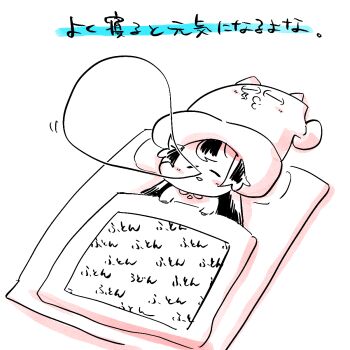 よく寝ると元気になるよな。
ふとん ふとん
ふとん ふとん ふとん
ふとん ふとん ふとん
ふとん うどん ふとん
ふとん ふとん
ふとん